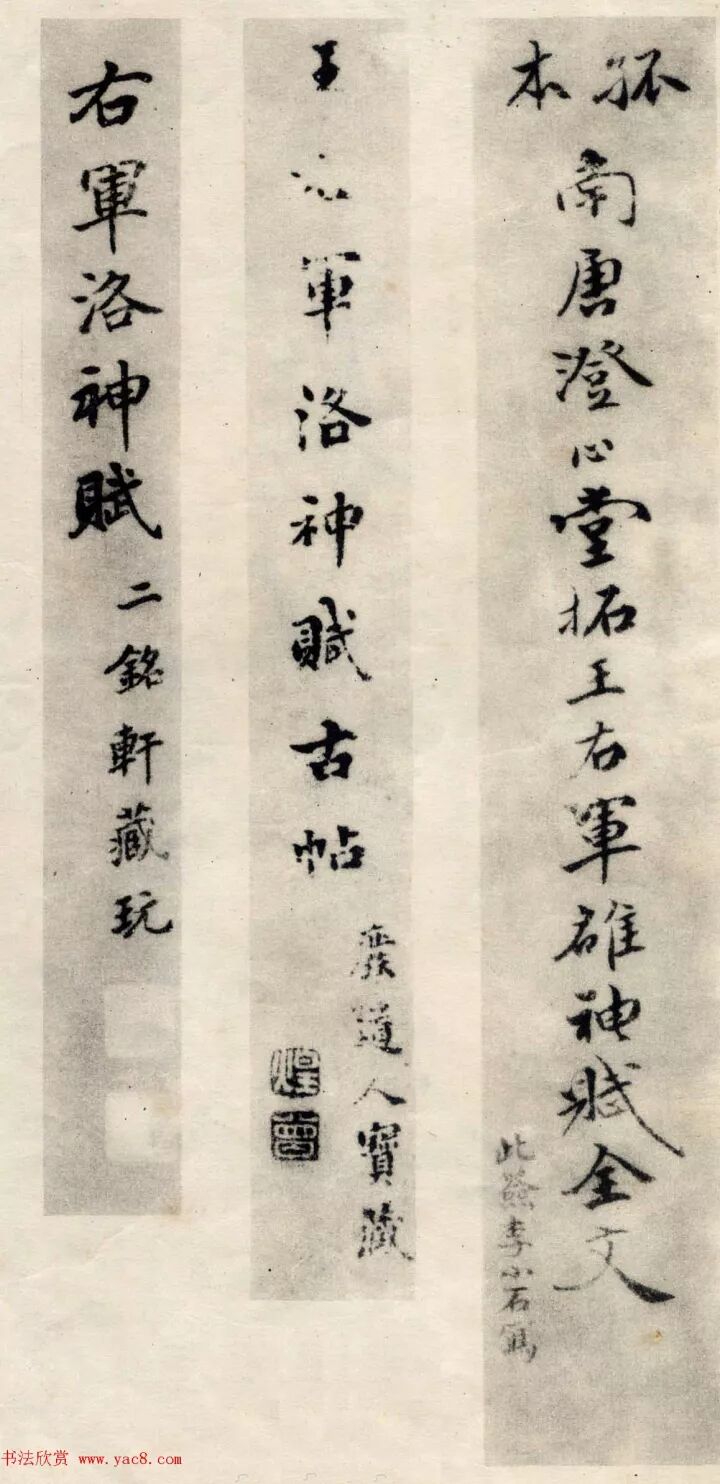 孤本
南唐澄心堂拓王右軍雒神賦全文
此李小石寫
王軍洛神賦古帖
道人寶藏
右軍洛神賦
二銘軒藏玩
书法欣赏 www.yac8.com